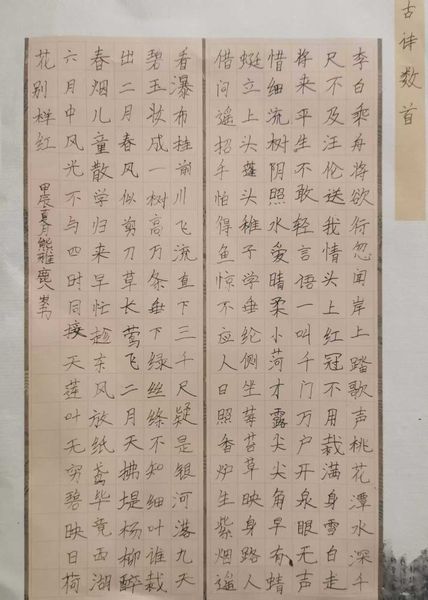 古诗数首
李白乘舟将欲行忽闻岸上踏歌声桃花潭水深千
尺不及汪伦送我情头上红冠不用裁满身雪白走
将来平生不敢轻言语一叫千门万户开泉眼无声
惜细流树阴照水爱晴柔小荷才露尖尖角早有蜻
蜓立上头蓬头稚子学垂纶侧坐莓苔草映身路人
借问遥招手怕得鱼惊不应人日照香炉生紫烟遥
看瀑布挂前川飞流直下三千尺疑是银河落九天
碧玉妆成一树高万条垂下绿丝绦不知细叶谁裁
出二月春风似剪刀草长莺飞二月天拂堤杨柳醉
春烟儿童散学归来早忙趁东风放纸鸢毕竟西湖
六月中风光不与四时同接天莲叶无穷碧映日荷
花别样红
甲辰夏月熊雅